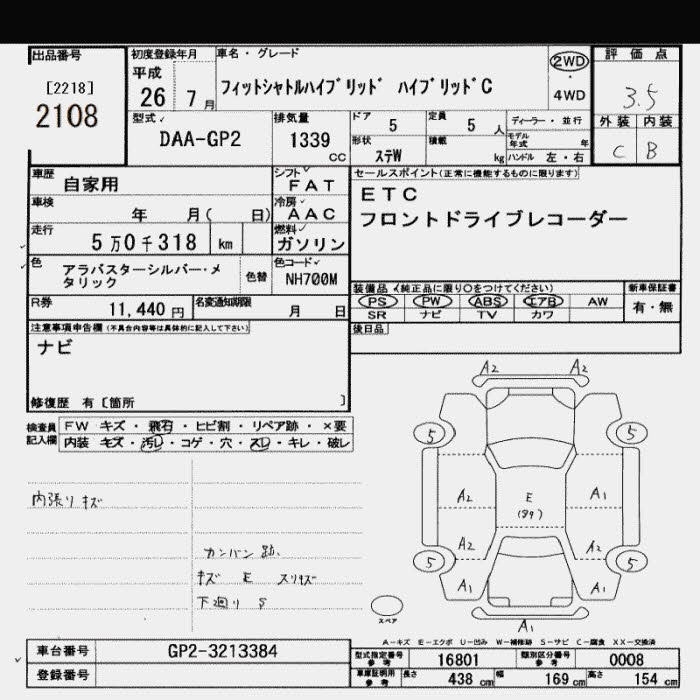 出品番号
[2218]
2108
初度登録年月
平成
26 7 月
車名・グレード
フィットシャトルハイブリッド ハイブリッドC
2WD
・
4WD
評価点
3.5
外装 内装
C B
型式
DAA-GP2
排気量
1339
cc
ドア 5
定員 5 人
形状 ステW
積載 kg
ディーラー・並行
モデル年式 年
ハンドル 左・右
車歴 自家用
シフト FAT
車検 年 月( 日)
冷房 AAC
走行 5万0千318 km
燃料 ガソリン
色 アラバスターシルバー・メタリック
色替
色コード NH700M
R券 11,440 円
名変通知期限 月 日
セールスポイント(正常に機能するものに限ります)
ETC
フロントドライブレコーダー
装備品 (純正品に限り○をつけてください)
PS PW ABS エアB AW
SR ナビ TV カワ
新車保証書
有・無
後日品
注意事項申告欄(不具合内容等は具体的に記入して下さい)
ナビ
修復歴 有〔箇所 〕
検査員記入欄
FW キズ・飛石・ヒビ割・リペア跡・×要
内装 キズ・汚レ・コゲ・穴・スレ・キレ・破レ
内張りキズ
カンバン跡、
キズ E スリキズ
下廻り S
A2 A2
5 5
A2 E A1
A2 A2
5 5
A1 A1
A1
スペア
A-キズ E-エクボ U-凹み W-補修跡 S-サビ C-腐食 XX-交換済
車台番号 GP2-3213384
登録番号
型式指定番号 参考 16801
類別区分番号 参考 0008
車庫証明用 参考 長さ 438 cm 幅 169 cm 高さ 154 cm